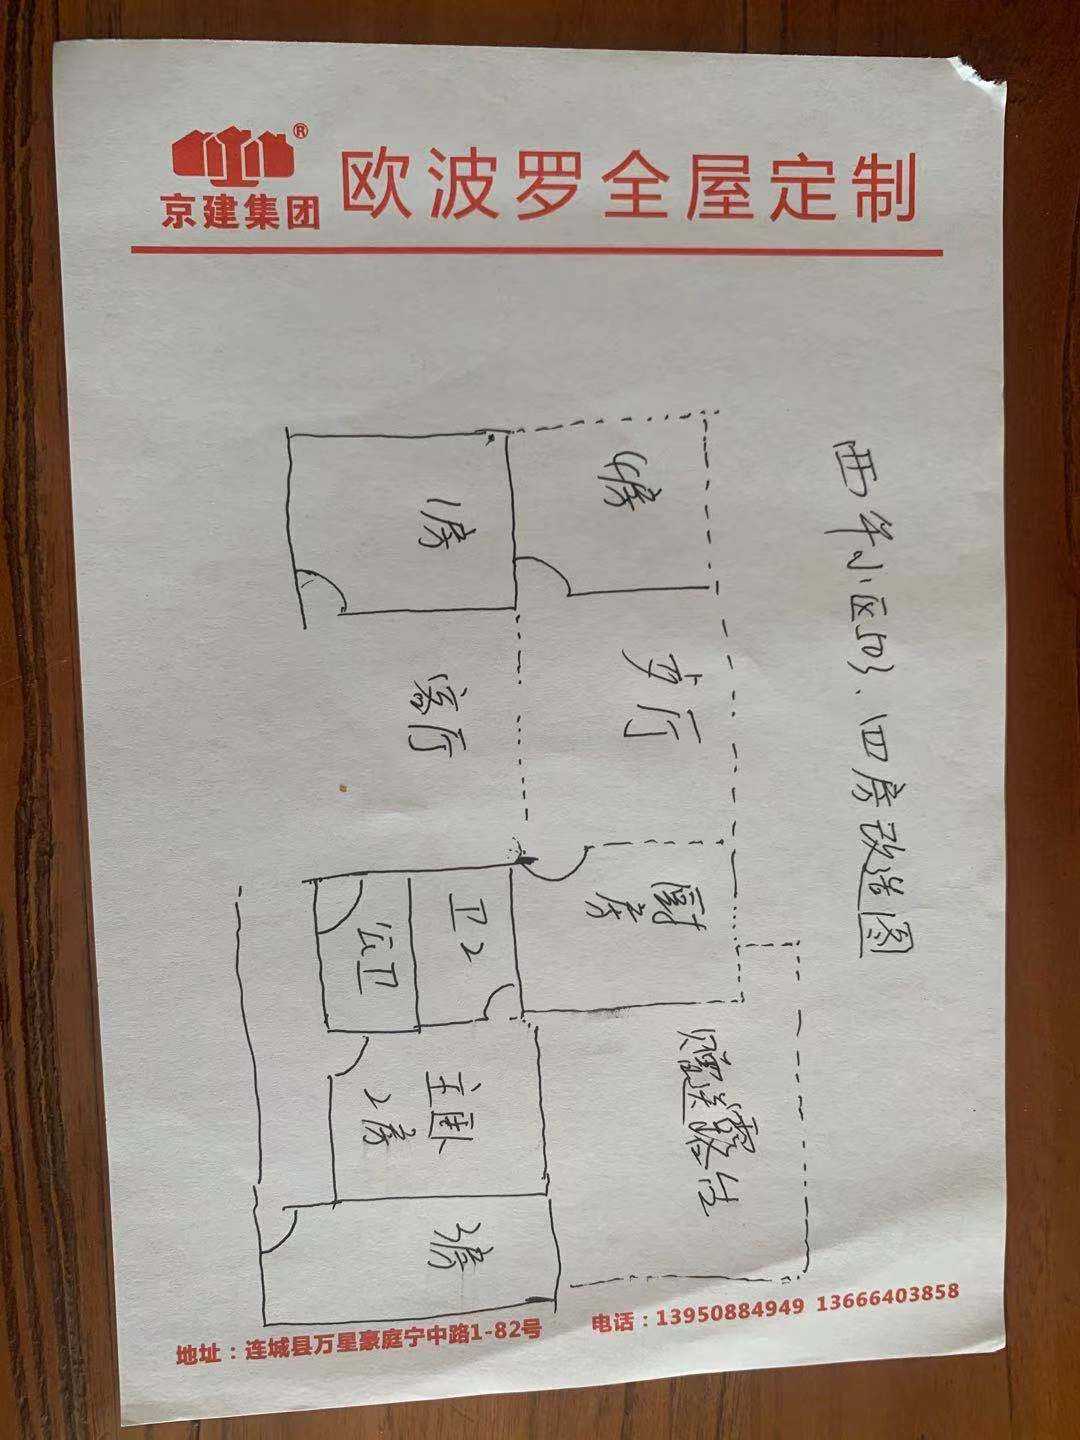 京建集团®
欧波罗全屋定制
四房改造图
4房
1房
客厅
厨房
卫2
公卫
主卧
2房
3房
赠送露台
地址：连城县万星豪庭宁中路1-82号
电话：13950884949 13666403858